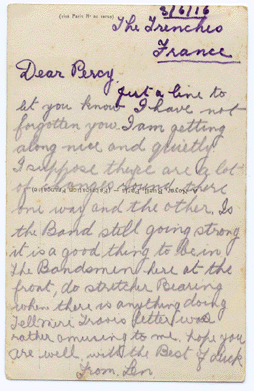 3/6/16
The Trenches
France
Dear Percy
Just a line to
let you know I have not
forgotten you. I am getting
along nice and quietly
I suppose there are a lot
of wounded round there
one way and the other. Is
the Band still going strong
it is a good thing to be in
the Bandsmen here at the
front, do stretcher Bearing
when there is anything doing
Tell letter was
rather amusing to me. hope you
are well, with the Best of luck
from Len